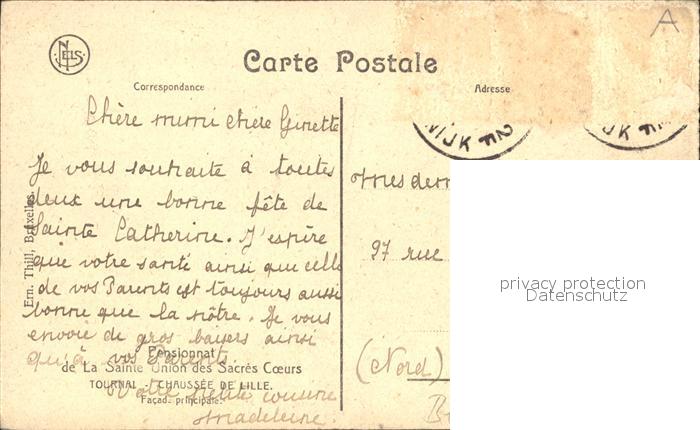 NELS
A
Carte Postale
Correspondance
Adresse
Chère mimi chère Ginette
Je vous souhaite à toutes
deux une bonne fête de
Sainte Catherine. J'espère
que votre santé ainsi que celle
de vos Parents est toujours aussi
bonne que la nôtre. Je vous
envoie de gros baisers ainsi
qu'à vos Parents.
Votre petite cousine
Madeleine.
Ern. Thill, Bruxelles.
Pensionnat
de La Sainte Union des Sacrés Cœurs
TOURNAI - CHAUSSÉE DE LILLE.
Façade principale.
97 rue
(Nord)
privacy protection
Datenschutz